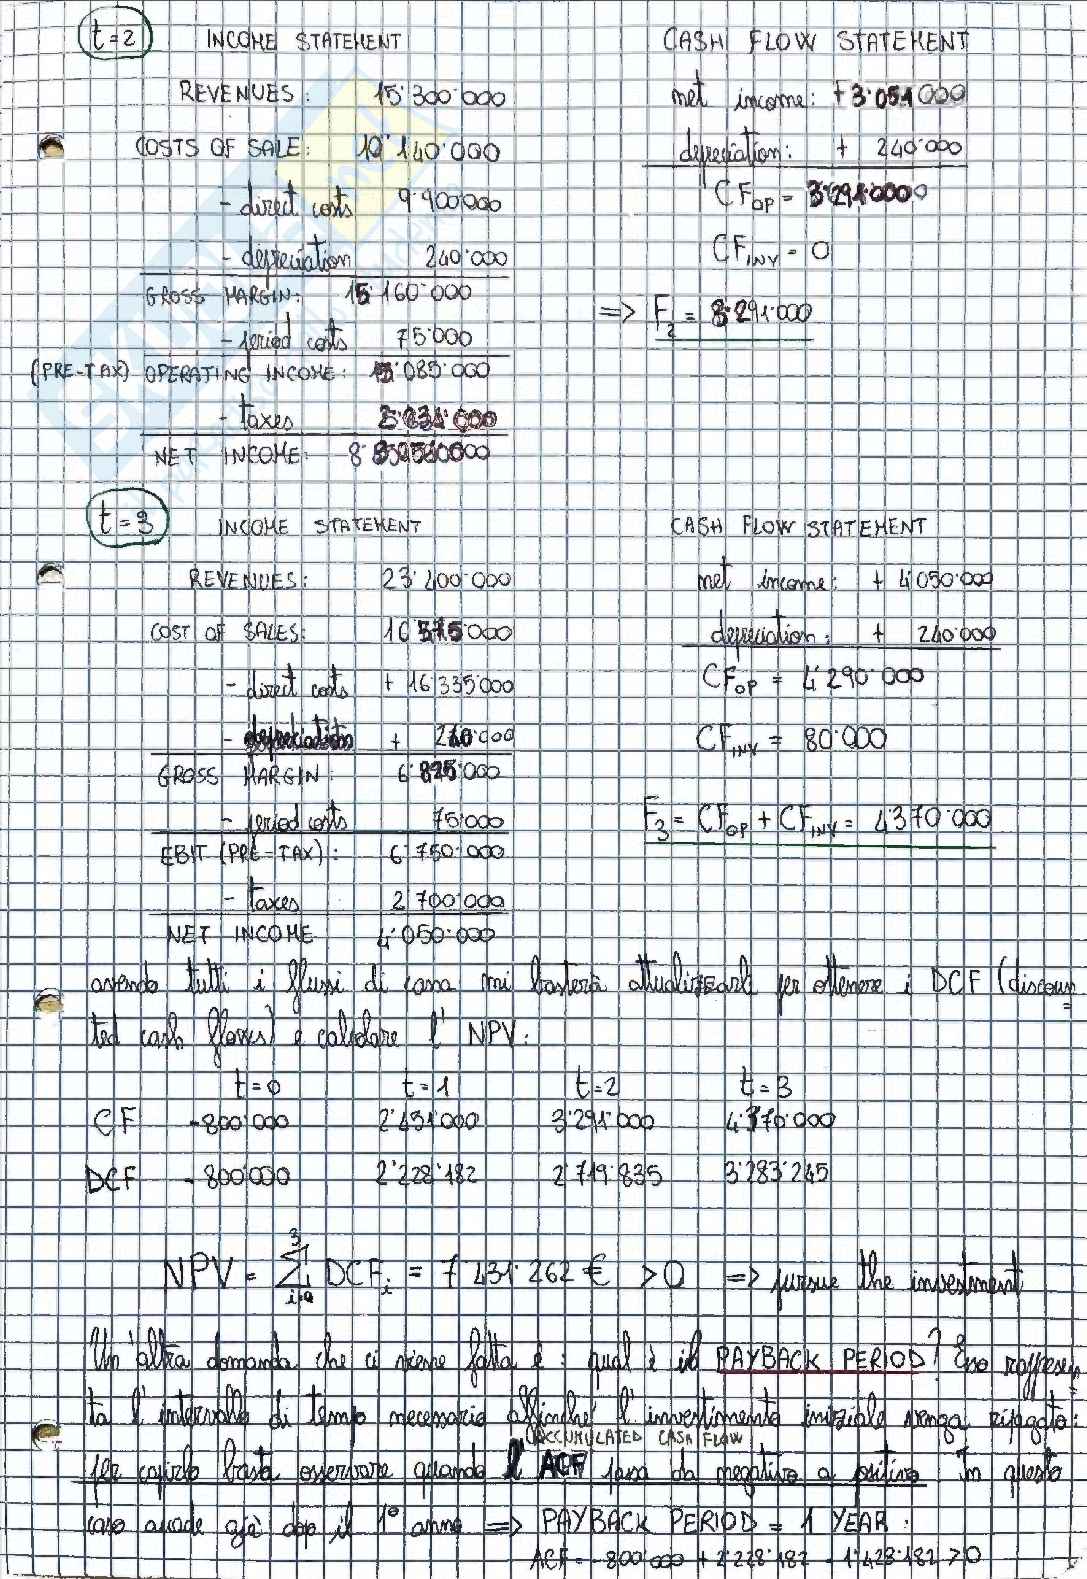 t=2 INCOME STATEMENT CASH FLOW STATEMENT
REVENUES: 15'300'000 net income: +3'051'000
COSTS OF SALE: 10'140'000 depreciation: + 240'000
- direct costs 9'900'000 CF_OP = 3'291'000
- depreciation 240'000 CF_INV = 0
GROSS MARGIN: 15'160'000 => F_2 = 3'291'000
- period costs 75'000
(PRE-TAX) OPERATING INCOME: 085'000
- taxes
NET INCOME:
t=3 INCOME STATEMENT CASH FLOW STATEMENT
REVENUES: 23'400'000 net income: + 4'050'000
COST OF SALES: 16'575'000 depreciation: + 240'000
- direct costs + 16'335'000 CF_OP = 4'290'000
- depreciation + 240'000 CF_INV = 80'000
GROSS MARGIN: 6'825'000
- period costs 75'000 F_3 = CF_OP + CF_INV = 4'370'000
EBIT (PRE-TAX): 6'750'000
- taxes 2'700'000
NET INCOME 4'050'000
avendo tutti i flussi di cassa mi basterà attualizzarli per ottenere i DCF (discoun
ted cash flows) e calcolare l' NPV:
t=0 t=1 t=2 t=3
CF -800'000 2'431'000 3'291'000 4'370'000
DCF -800'000 2'228'182 2'719'835 3'283'245
NPV = Σ_{i=0}^{3} DCF_i = 7'431'262 € >0 => pursue the investment
Un'altra domanda che ci viene fatta è: qual è il PAYBACK PERIOD? Esso rappresen
ta l'intervallo di tempo necessario affinché l'investimento iniziale venga ripagato:
ACCUMULATED CASH FLOW
per capirlo basta osservare quando l' ACF passa da negativo a positivo. In questo
caso accade già dopo il 1° anno => PAYBACK PERIOD = 1 YEAR.
ACF = -800'000 + 2'228'182 = 1'428'182 >0